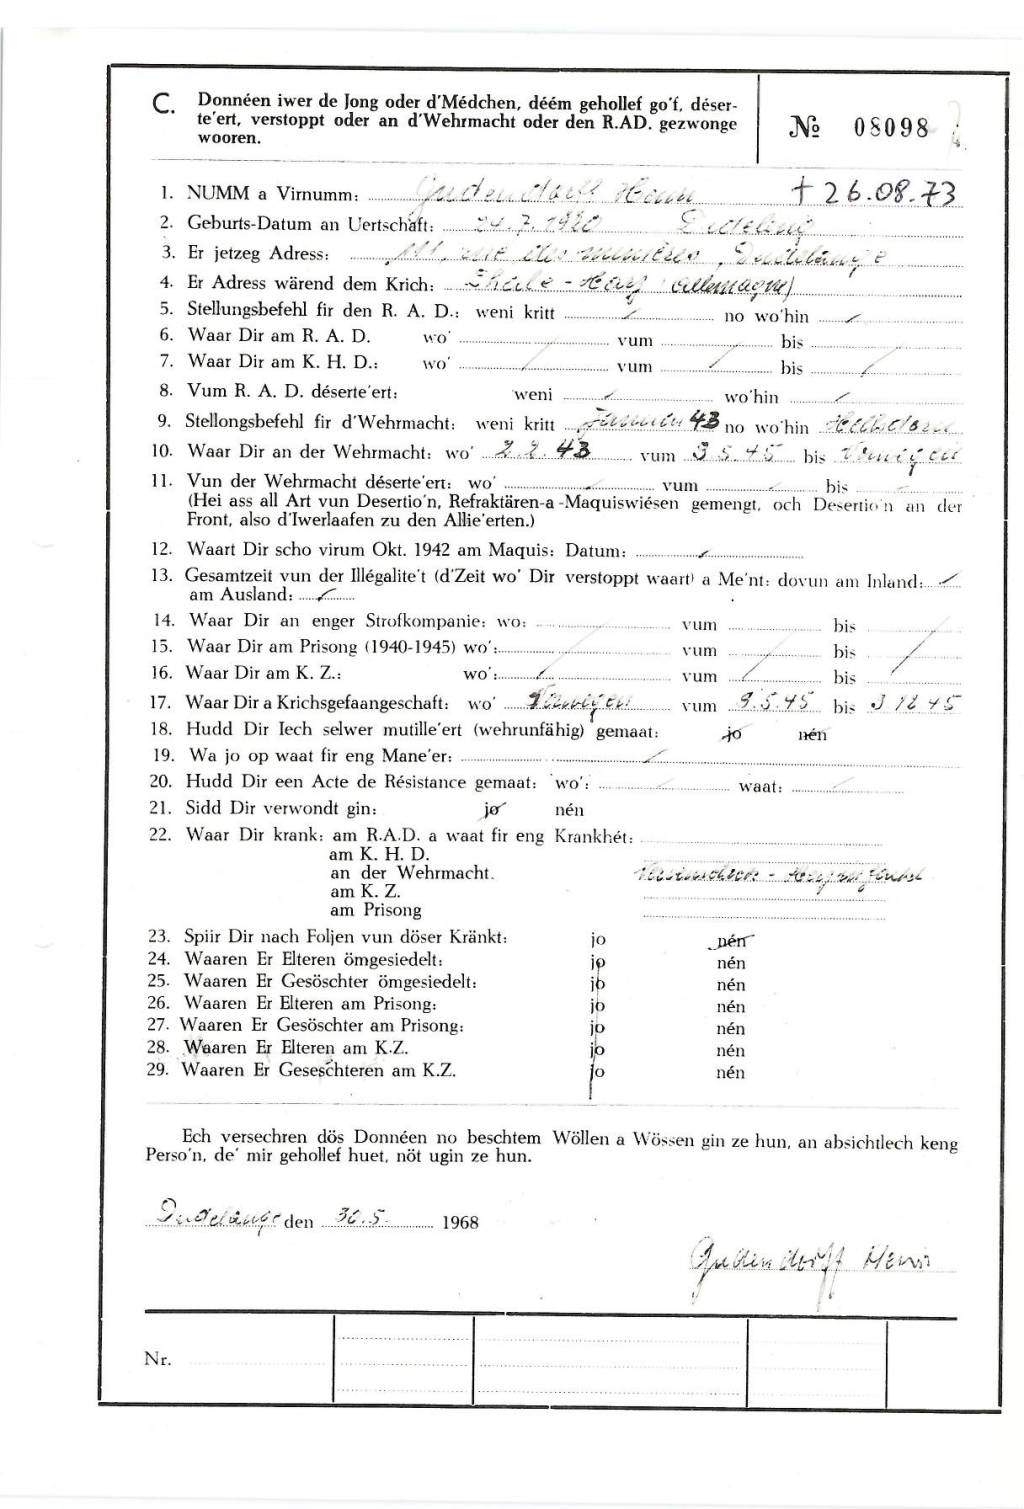 C. Donnéen iwer de Jong oder d'Médchen, déém gehollef go'f, déser-
te'ert, verstoppt oder an d'Wehrmacht oder den R.AD. gezwonge
wooren.
№ 08098
1. NUMM a Virnumm: Gudendorff Henri † 26.08.73
2. Geburts-Datum an Uertschaft: 24.7.1920 Dudeling
3. Er jetzeg Adress: 111, rue des minières, Dudelange
4. Er Adress wärend dem Krich: Thale - Harz (Allemagne)
5. Stellungsbefehl fir den R. A. D.: weni kritt / no wo'hin /
6. Waar Dir am R. A. D. wo' vum bis
7. Waar Dir am K. H. D.: wo' / vum / bis /
8. Vum R. A. D. déserte'ert: weni / wo'hin /
9. Stellongsbefehl fir d'Wehrmacht: weni kritt 43 no wo'hin
10. Waar Dir an der Wehrmacht: wo' 2.2.43 vum 3.5.45 bis Norwegen
11. Vun der Wehrmacht déserte'ert: wo' vum bis
(Hei ass all Art vun Desertio'n, Refraktären-a-Maquiswiésen gemengt, och Desertio'n an der
Front, also d'Iwerlaafen zu den Allie'erten.)
12. Waart Dir scho virum Okt. 1942 am Maquis: Datum: /
13. Gesamtzeit vun der Illégalite't (d'Zeit wo' Dir verstoppt waart) a Me'nt: dovun am Inland: /
am Ausland: /
14. Waar Dir an enger Strofkompanie: wo: vum bis
15. Waar Dir am Prisong (1940-1945) wo': vum bis
16. Waar Dir am K. Z.: wo': / vum / bis /
17. Waar Dir a Krichsgefaangeschaft: wo' Norwegen vum 9.5.45 bis 3 12 45
18. Hudd Dir Iech selwer mutille'ert (wehrunfähig) gemaat: jo nén
19. Wa jo op waat fir eng Mane'er: /
20. Hudd Dir een Acte de Résistance gemaat: wo': / waat: /
21. Sidd Dir verwondt gin: jo nén
22. Waar Dir krank: am R.A.D. a waat fir eng Krankhét:
am K. H. D.
an der Wehrmacht.
am K. Z.
am Prisong
23. Spiir Dir nach Foljen vun döser Kränkt: jo nén
24. Waaren Er Elteren ömgesiedelt: jo nén
25. Waaren Er Gesöschter ömgesiedelt: jo nén
26. Waaren Er Elteren am Prisong: jo nén
27. Waaren Er Gesöschter am Prisong: jo nén
28. Waaren Er Elteren am K.Z. jo nén
29. Waaren Er Geseschteren am K.Z. jo nén
Ech versechren dös Donnéen no beschtem Wöllen a Wössen gin ze hun, an absichtlech keng
Perso'n, de' mir gehollef huet, nöt ugin ze hun.
Dudelange den 30.5. 1968
Gudendorff Henri
Nr.